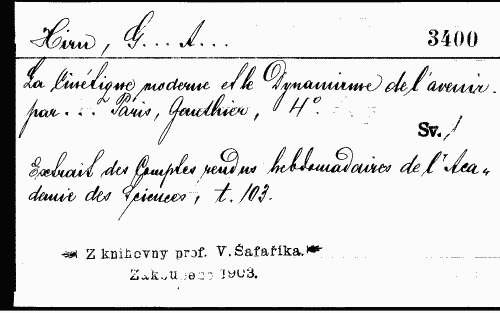 Hirn, G... A...
3400
La Cinétique moderne et le Dynamisme de l'avenir.
par... Paris, Gauthier, 4°.
Sv. 1
Extrait des Comptes rendus hebdomadaires de l'Aca„
demie des Sciences, t. 103.
Z knihovny prof. V. Šafaříka.
Zakoupeno 1903.